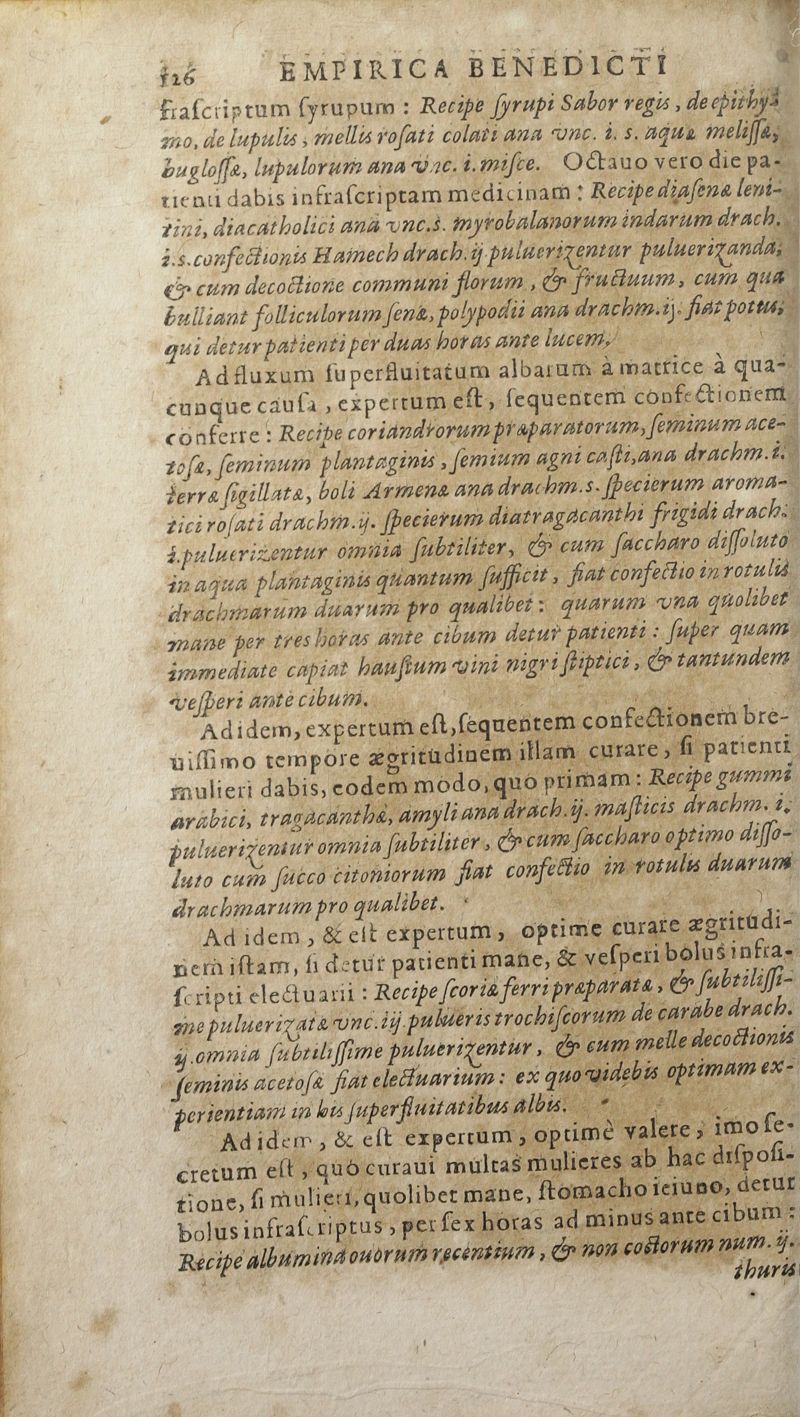 126 EMPIRICA BENEDICTI
fraſcriptum ſyrupum : Recipe ſyrupi Sabor regis, de epithy-
mo, de lupulis, mellis roſati colati ana vnc. i. s. aquæ meliſſæ,
bugloſſæ, lupulorum ana vnc. i. miſce. Octauo vero die pa-
tienti dabis infraſcriptam medicinam : Recipe diaſenæ leni-
tini, diacatholici ana vnc.s. myrobalanorum indarum drach.
i.s. confectionis Hamech drach. ij. puluerizentur puluerizanda,
& cum decoctione communi florum, & fructuum, cum qua
bulliant folliculorum ſenæ, polypodii ana drachm. ij. fiat potus,
qui detur patienti per duas horas ante lucem.
Ad fluxum ſuperfluitatum albarum à matrice à qua-
cunque cauſa, expertum eſt, ſequentem confectionem
conferre : Recipe coriandrorum præparatorum, ſeminum ace-
toſæ, ſeminum plantaginis, ſemium agni caſti, ana drachm. i.
terræ ſigillatæ, boli Armenæ ana drachm.s. ſpecierum aroma-
tici roſati drachm. ij. ſpecierum diatragacanthi frigidi drach.
i. puluerizentur omnia ſubtiliter, & cum ſaccharo diſſoluto
in aqua plantaginis quantum ſufficit, fiat confectio in rotulis
drachmarum duarum pro qualibet : quarum vna quolibet
mane per tres horas ante cibum detur patienti : ſuper quam
immediate capiat hauſtum vini nigri ſtiptici, & tantundem
veſperi ante cibum.
Ad idem, expertum eſt, ſequentem confectionem bre-
uiſſimo tempore ægritudinem illam curare, ſi patienti
mulieri dabis, eodem modo, quo primam : Recipe gummi
arabici, tragacanthæ, amyli ana drach. ij. maſticis drachm. i.
puluerizentur omnia ſubtiliter, & cum ſaccharo optimo diſſo-
luto cum ſucco citoniorum fiat confectio in rotulis duarum
drachmarum pro qualibet.
Ad idem, & eſt expertum, optime curare ægritudi-
nem iſtam, ſi detur patienti mane, & veſperi bolus infra-
ſcripti electuarii : Recipe ſcoriæ ferri præparatæ, & ſubtiliſſi-
me puluerizatæ vnc. iij. pulueris trochiſcorum de carabe drach.
ij. omnia ſubtiliſſime puluerizentur, & cum melle decoctionis
ſeminis acetoſæ fiat electuarium : ex quo videbis optimam ex-
perientiam in his ſuperfluitatibus albis.
Ad idem, & eſt expertum, optimè valere, imo ſe-
cretum eſt, quò curaui multas mulieres ab hac diſpoſi-
tione, ſi mulieri, quolibet mane, ſtomacho ieiuno, detur
bolus infraſcriptus, per ſex horas ad minus ante cibum :
Recipe albumina ouorum recentium, & non coctorum num. ij.
thuris